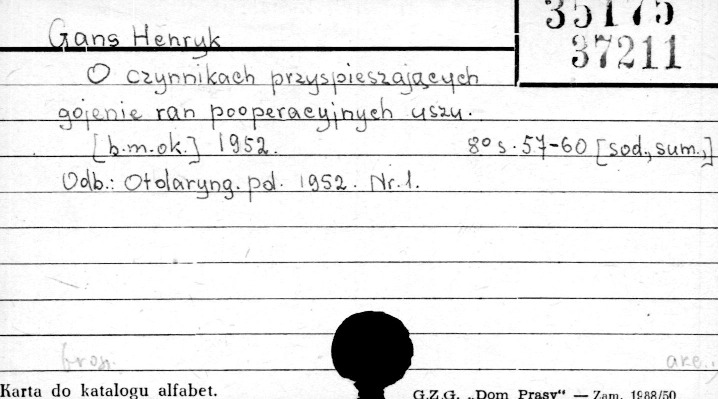 35175
37211
Gans Henryk
O czynnikach przyspieszających
gojenie ran pooperacyjnych uszu.
[b.m.ok.] 1952. 8° s. 57-60 [sod., sum.,]
Odb.: Otolaryng. pol. 1952. Nr. 1.
bros. akc.
Karta do katalogu alfabet. G.Z.G. „Dom Prasy“ — Zam. 1988/50